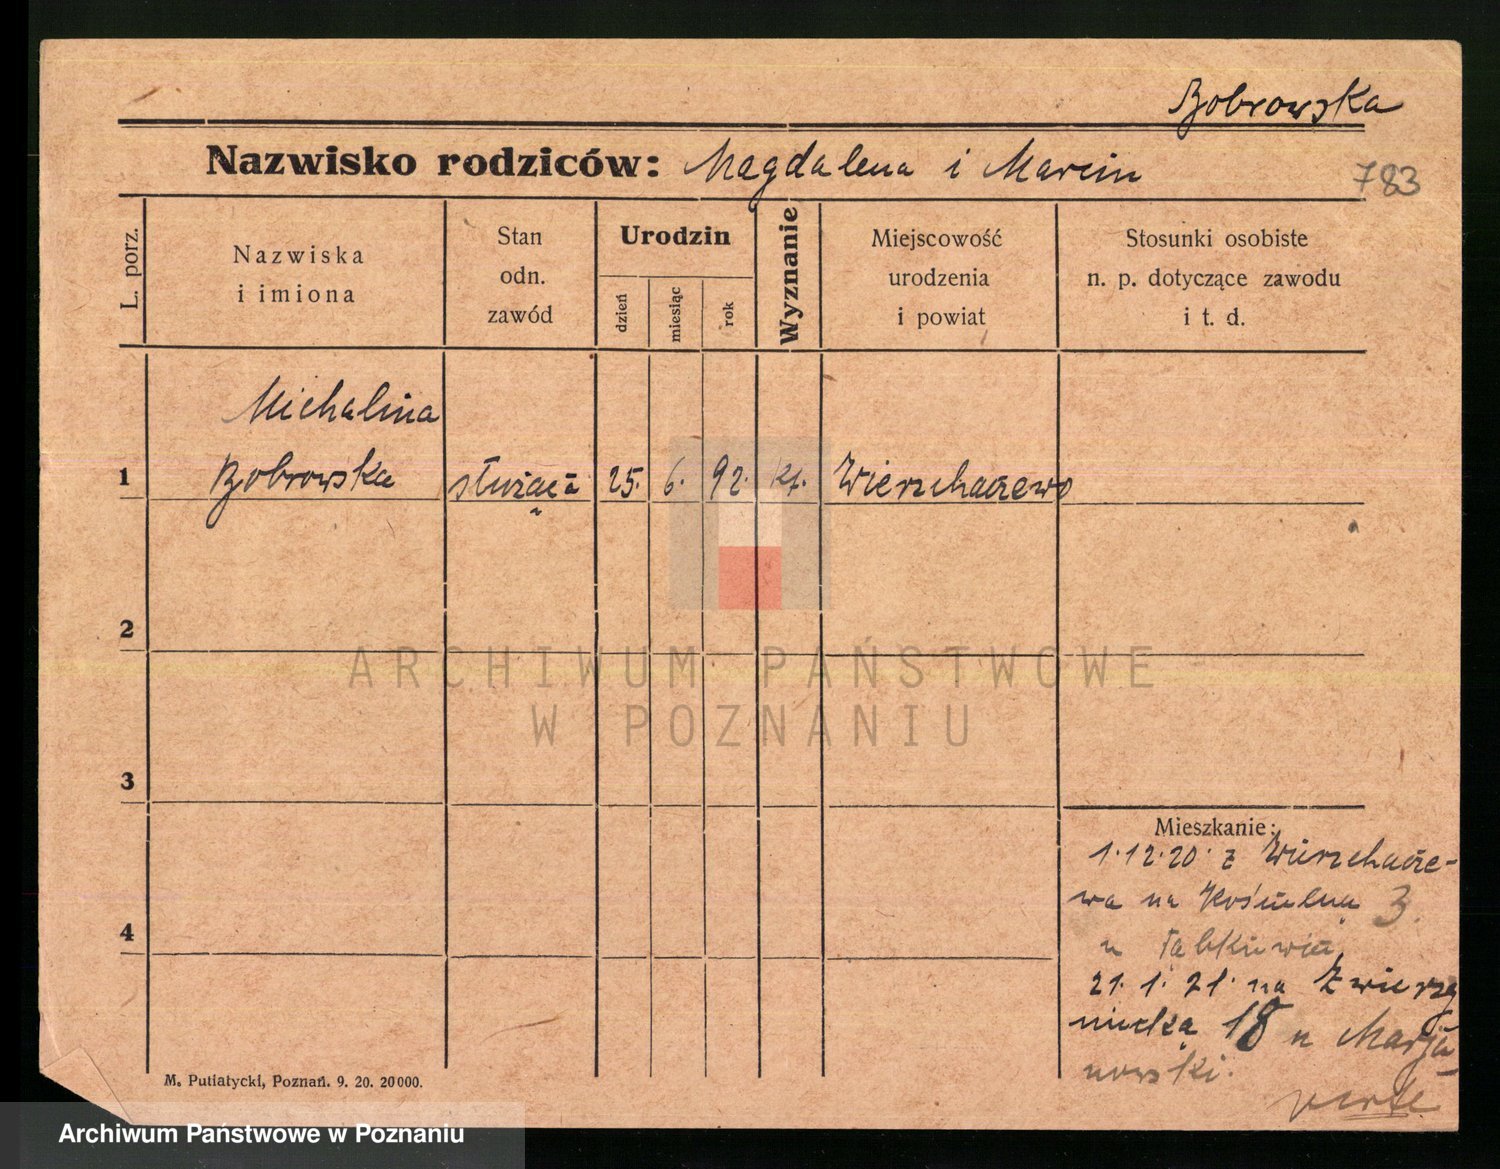 Bobrowska
Nazwisko rodziców: Magdalena i Marcin
783
L. porz.
Nazwiska
i imiona
Stan
odn.
zawód
Urodzin
dzień
miesiąc
rok
Wyznanie
Miejscowość
urodzenia
i powiat
Stosunki osobiste
n. p. dotyczące zawodu
i t. d.
Michalina
1 Bobrowska służąca 25. 6. 92. kt. Wierzchaczewo
2
3
4
ARCHIWUM PAŃSTWOWE
W POZNANIU
Mieszkanie:
1.12.20. z Wierzchacze-
wa na Kościelną 3.
u
21.1.21. na Zwierzy
niecką 18 u Marja
nowski.
verte
M. Putiatycki, Poznań. 9. 20. 20000.
Archiwum Państwowe w Poznaniu